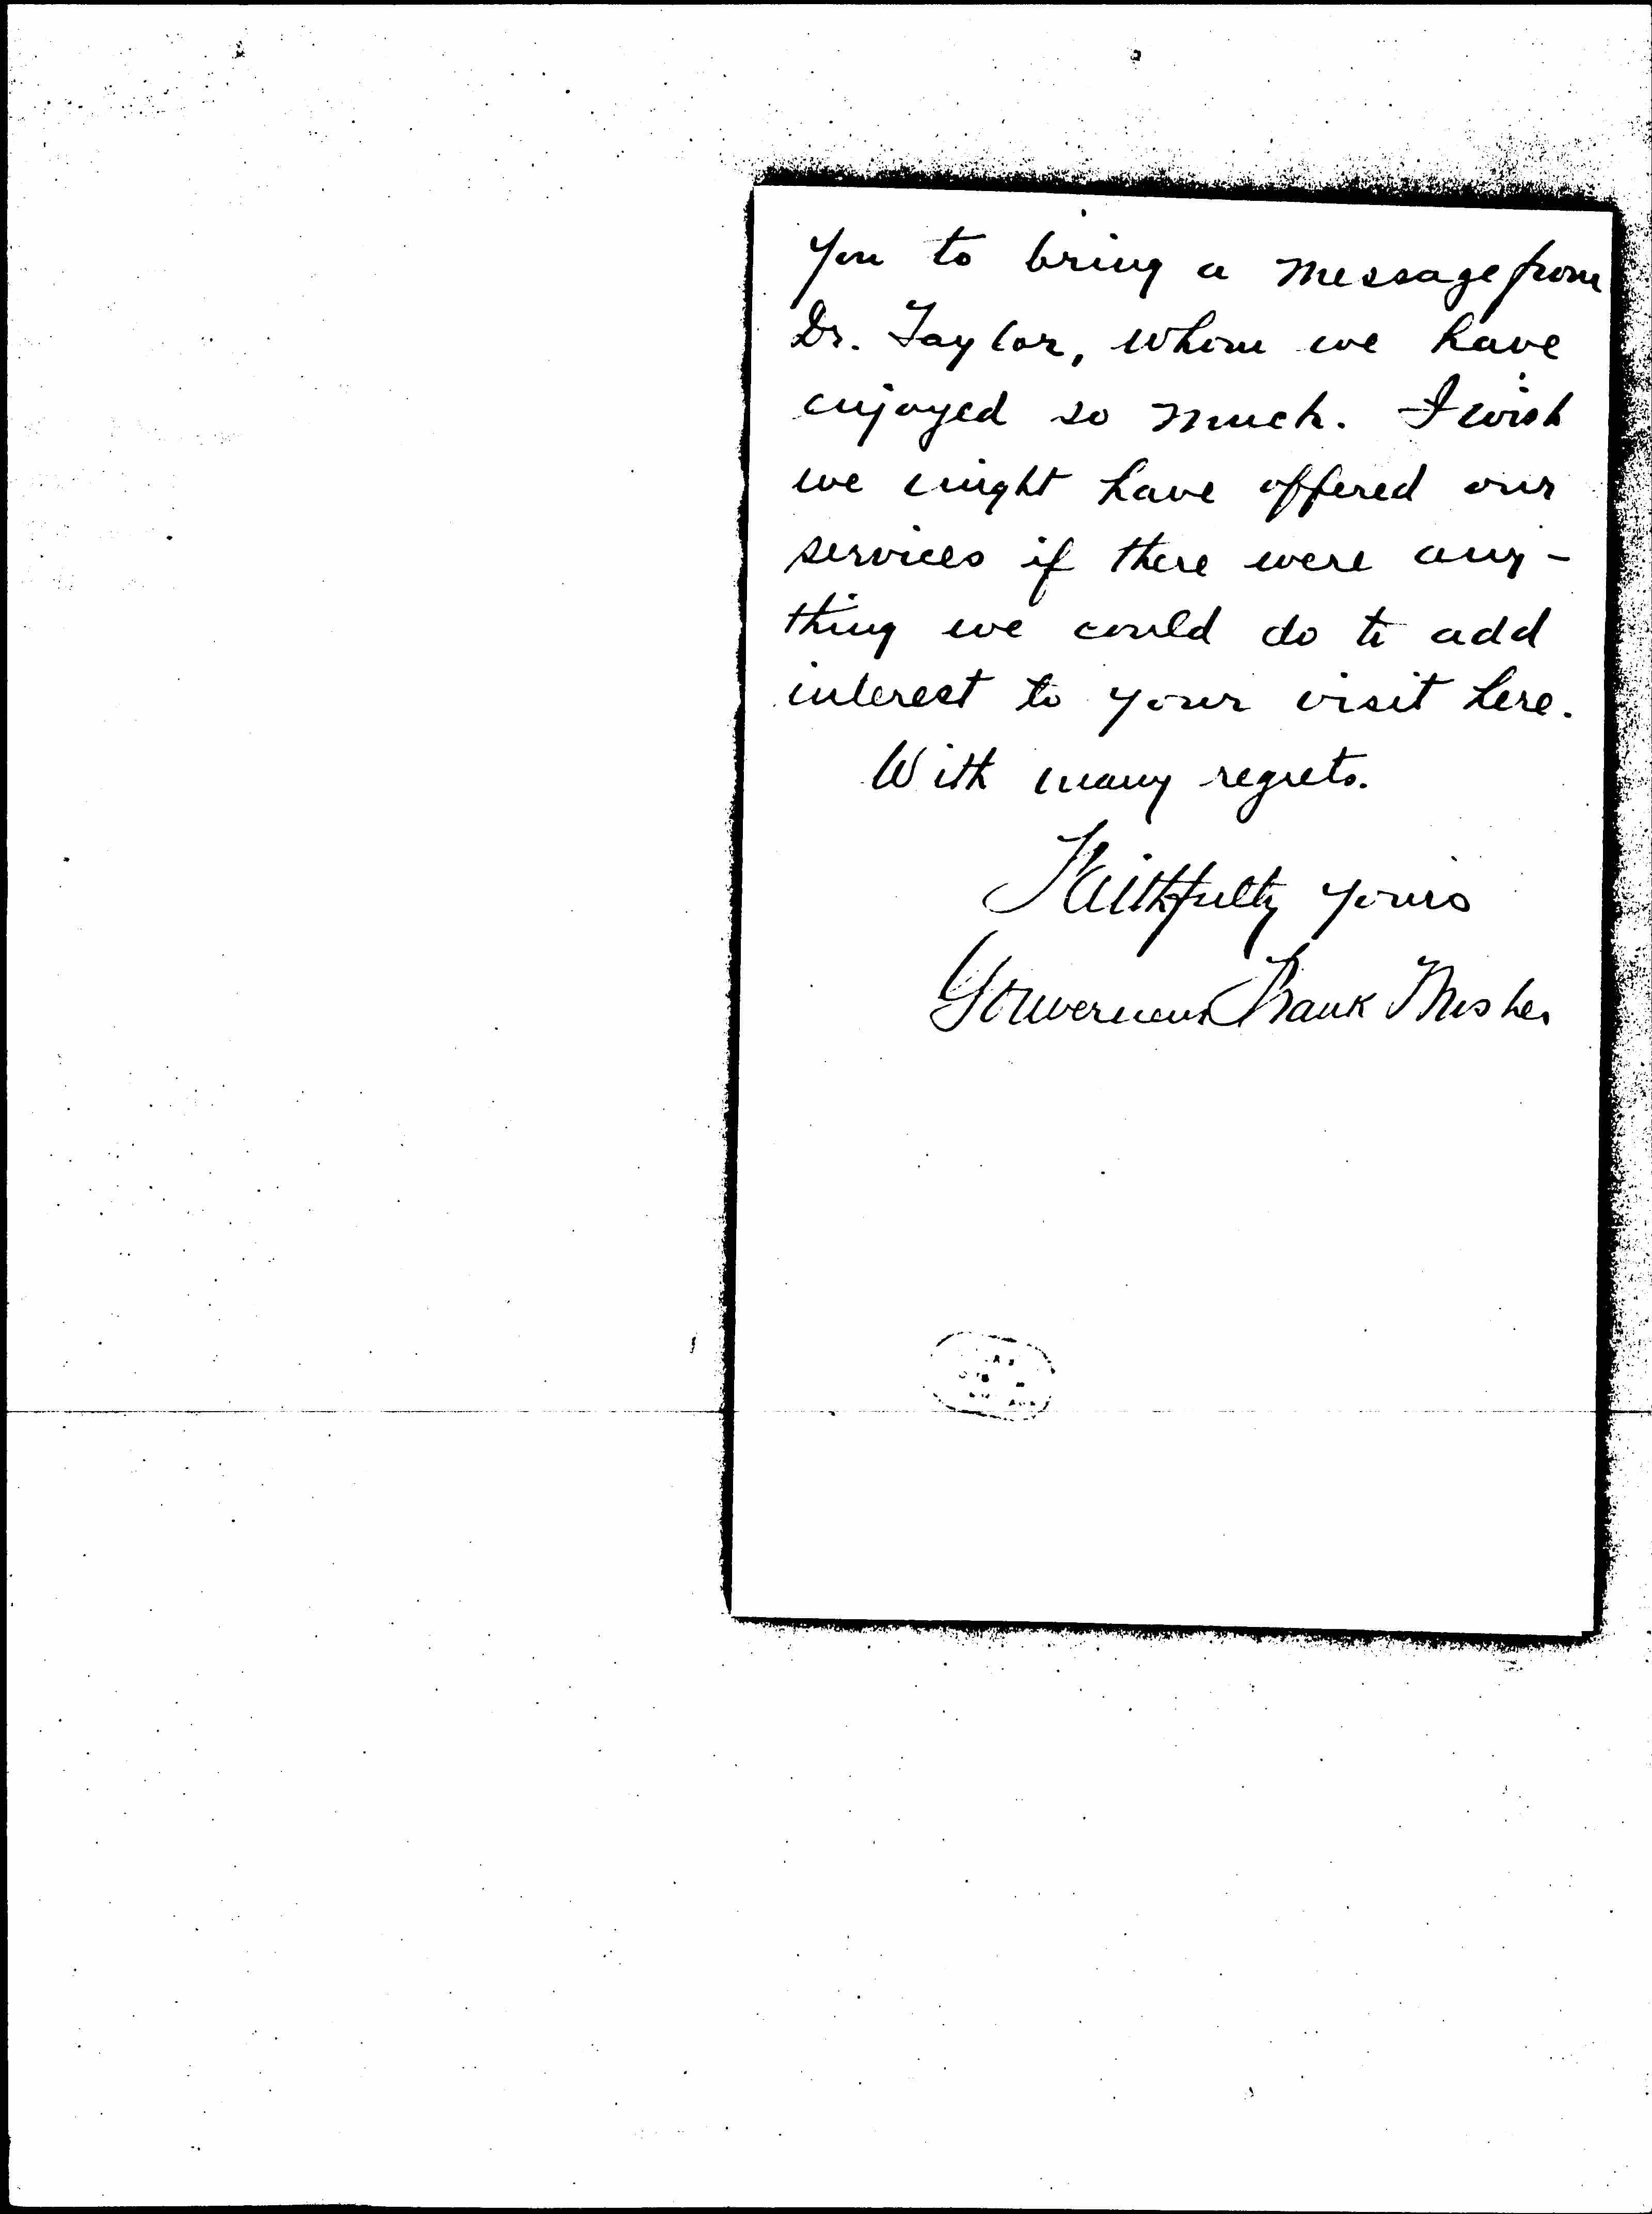 you to bring a message from
Dr. Taylor, whom we have
enjoyed so much. I wish
we might have offered our
services if there were any-
thing we could do to add
interest to your visit here.
With many regrets.
Faithfully yours
Gouverneur Frank Mosher